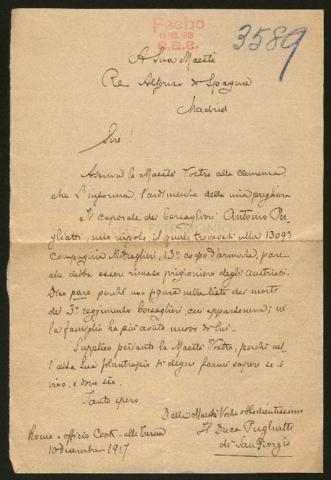 Fecho
3589
A Sua Maestà
Re Alfonso di Spagna
Madrid
Sire!
Ascriva la Maestà Vostra alla clemenza,
che L'informa, l'ardimento della mia preghiera
Il caporale dei bersaglieri Antonio Pu
gliatti, mio nipote, il quale trovavasi alla 1309ª
compagnia Mitraglieri, 13º corpo d'armata, pare
che debba essere rimasto prigioniero degli Austriaci.
Dico pare, perché non figura nella lista dei morti
del 3º reggimento bersaglieri, cui apparteneva; né
la famiglia ha più avuto nuove di lui.
Supplico pertanto la Maestà Vostra, perché nel
l'alta Sua filantropia si degni farmi sapere se è
vivo, e dove sia.
Tanto spero
Della Maestà Vostra obbedientissimo
Il Duca Pugliatti
di San Giorgio
Roma - officio Centr - alle
10 dicembre 1917